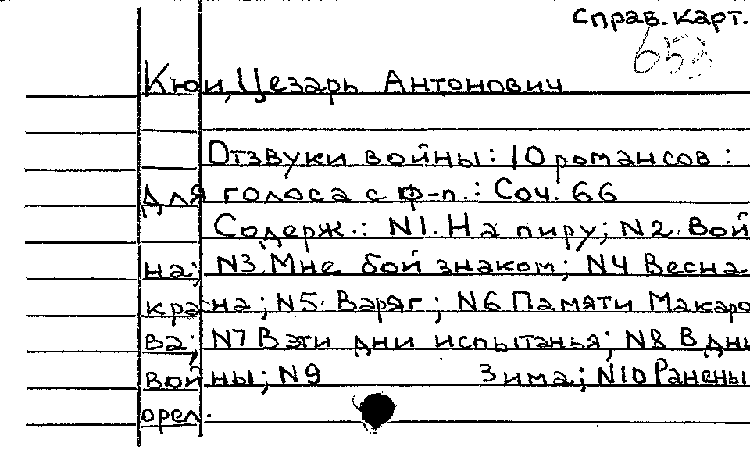 Справ. карт.
653
Кюи, Цезарь Антонович
Отзвуки войны: 10 романсов :
для голоса с ф-п.: Соч. 66
Содерж.: N1. На пиру; N2. Вой
на; N3. Мне бой знаком; N4 Весна
красна; N5. Варяг; N6 Памяти Макаро
ва; N7 В эти дни испытанья; N8 В дни
войны; N9 Зима; N10 Ранены
орел.